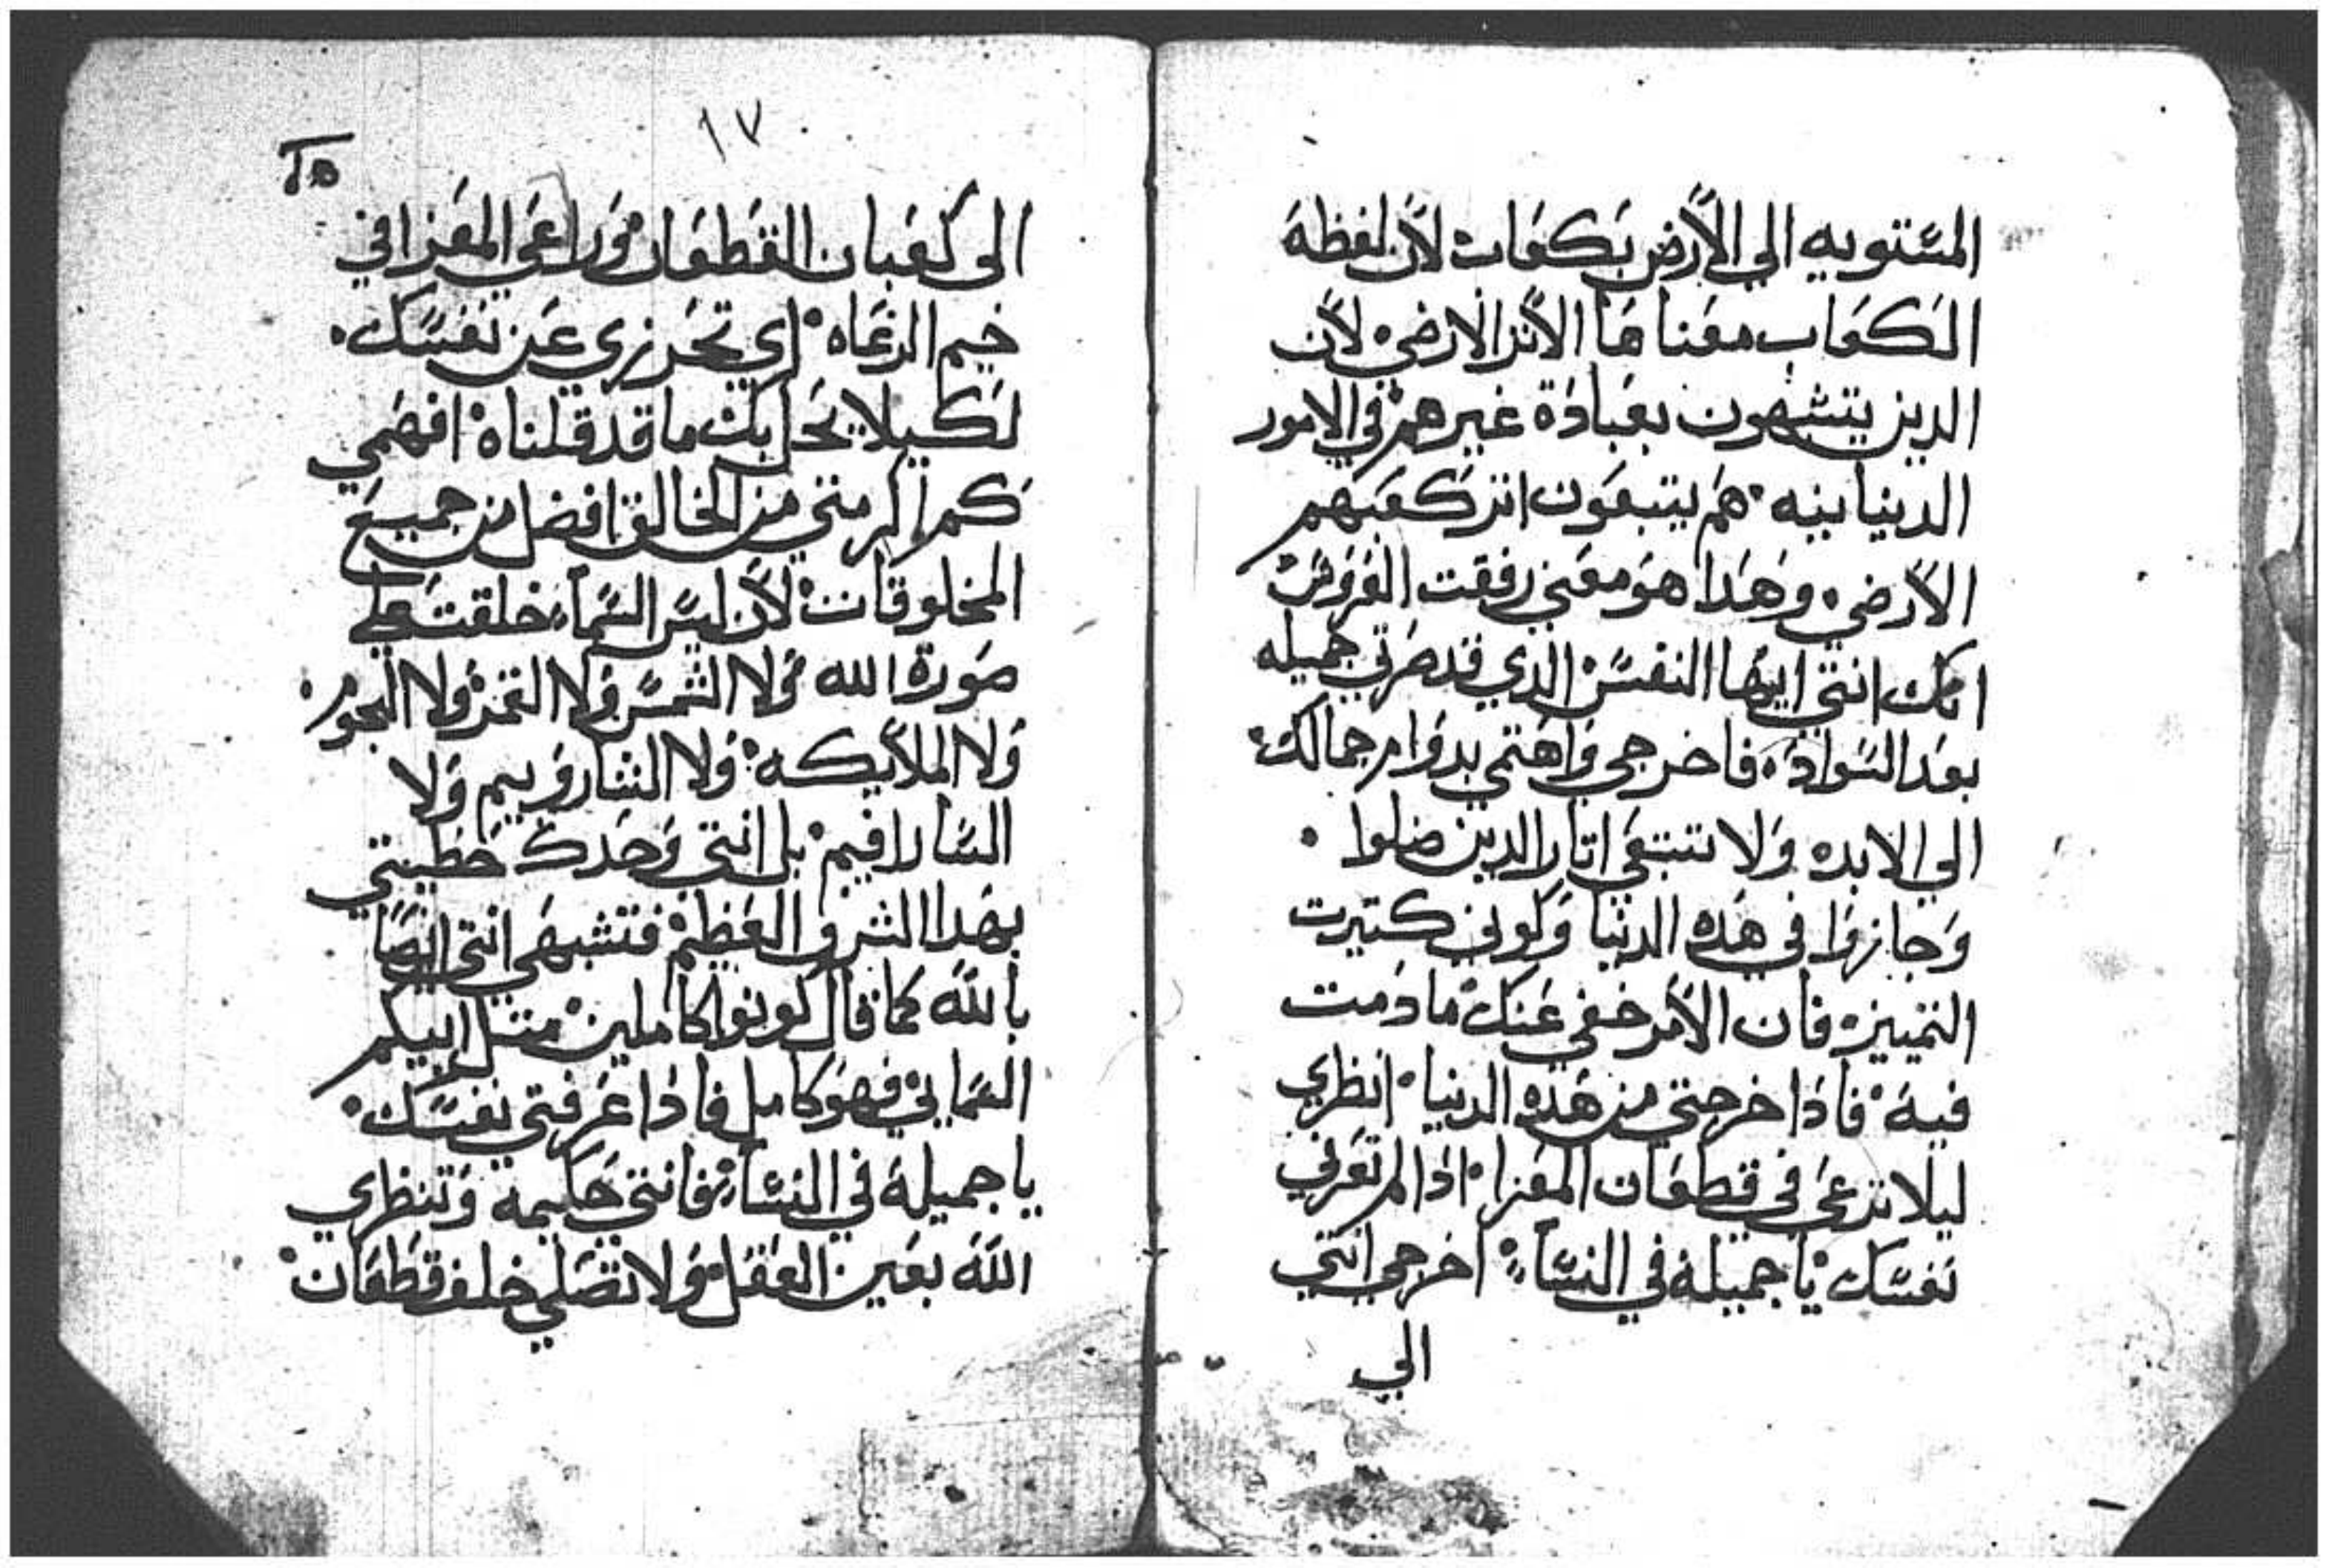 المستويه الي الأرض بكعاب لأن لفظة
الكعاب معناها الأثر الارضي لأن
الدين يتشبهون بعبادة غيرهم في الامور
الدنيانيه هم يتبعون اتر كعبهم
الأرضي وهدا هو معني رفقت العروس
انك انتي ايتها النفس الدي قد صرتي جميله
بعد السواد فاخرجي واهتمي بدوام جمالك
الي الابد ولا تتبعي اتار الدين ضلوا
وجازوا في هده الدنيا وكوني كتيرت
التمييز فان الأمر خفي عنك ما دمت
فيه فادا خرجتي من هده الدنيا انظري
ليلا ترعي في قطعان المعزا ادا لم تعرفي
نفسك يا جميلة في النساء اخرجي انتي
الي
١٧
الى كعبان القطعان وراعي المعزا في
خيم الرعاه اي تحرزي عن نفسك
لكيلا يحل بك ما قد قلناه افهمي
كم اكرمتي من الخالق افضل من جميع
المخلوقات لأن ليس السماء خلقت علي
صورة الله ولا الشمس ولا القمر ولا النجوم
ولا الملايكه ولا الشاروبيم ولا
السارافيم بل انتي وحدك حظيتي
بهدا الشرف العظيم فتشبهي انتي ايضا
بالله كما قال كونوا كاملين متل ابيكم
السمايي فهو كامل فادا عرفتي نفسك
يا جميلة في النساء فانتي حكيمة وتنظري
الله بعين العقل ولا تصلي خلف قطعان